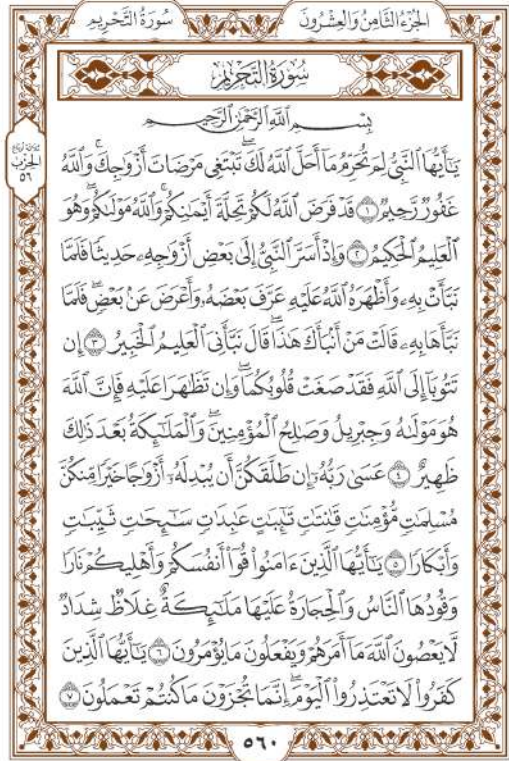 الجُزْءُ الثَّامِنُ وَالعِشْرُونَ
سُورَةُ التَّحْرِيمِ
سُورَةُ التَّحْرِيمِ
بِسْمِ اللَّهِ الرَّحْمَٰنِ الرَّحِيمِ
يَٰٓأَيُّهَا ٱلنَّبِيُّ لِمَ تُحَرِّمُ مَآ أَحَلَّ ٱللَّهُ لَكَۖ تَبۡتَغِي مَرۡضَاتَ أَزۡوَٰجِكَۚ وَٱللَّهُ
غَفُورٞ رَّحِيمٞ ١ قَدۡ فَرَضَ ٱللَّهُ لَكُمۡ تَحِلَّةَ أَيۡمَٰنِكُمۡۚ وَٱللَّهُ مَوۡلَىٰكُمۡۖ وَهُوَ
ٱلۡعَلِيمُ ٱلۡحَكِيمُ ٢ وَإِذۡ أَسَرَّ ٱلنَّبِيُّ إِلَىٰ بَعۡضِ أَزۡوَٰجِهِۦ حَدِيثٗا فَلَمَّا
نَبَّأَتۡ بِهِۦ وَأَظۡهَرَهُ ٱللَّهُ عَلَيۡهِ عَرَّفَ بَعۡضَهُۥ وَأَعۡرَضَ عَنۢ بَعۡضٖۖ فَلَمَّا
نَبَّأَهَا بِهِۦ قَالَتۡ مَنۡ أَنۢبَأَكَ هَٰذَاۖ قَالَ نَبَّأَنِيَ ٱلۡعَلِيمُ ٱلۡخَبِيرُ ٣ إِن
تَتُوبَآ إِلَى ٱللَّهِ فَقَدۡ صَغَتۡ قُلُوبُكُمَاۖ وَإِن تَظَٰهَرَا عَلَيۡهِ فَإِنَّ ٱللَّهَ
هُوَ مَوۡلَىٰهُ وَجِبۡرِيلُ وَصَٰلِحُ ٱلۡمُؤۡمِنِينَۖ وَٱلۡمَلَٰٓئِكَةُ بَعۡدَ ذَٰلِكَ
ظَهِيرٌ ٤ عَسَىٰ رَبُّهُۥٓ إِن طَلَّقَكُنَّ أَن يُبۡدِلَهُۥٓ أَزۡوَٰجًا خَيۡرٗا مِّنكُنَّ
مُسۡلِمَٰتٖ مُّؤۡمِنَٰتٖ قَٰنِتَٰتٖ تَٰٓئِبَٰتٍ عَٰبِدَٰتٖ سَٰٓئِحَٰتٖ ثَيِّبَٰتٖ
وَأَبۡكَارٗا ٥ يَٰٓأَيُّهَا ٱلَّذِينَ ءَامَنُواْ قُوٓاْ أَنفُسَكُمۡ وَأَهۡلِيكُمۡ نَارٗا
وَقُودُهَا ٱلنَّاسُ وَٱلۡحِجَارَةُ عَلَيۡهَا مَلَٰٓئِكَةٌ غِلَاظٞ شِدَادٞ
لَّا يَعۡصُونَ ٱللَّهَ مَآ أَمَرَهُمۡ وَيَفۡعَلُونَ مَا يُؤۡمَرُونَ ٦ يَٰٓأَيُّهَا ٱلَّذِينَ
كَفَرُواْ لَا تَعۡتَذِرُواْ ٱلۡيَوۡمَۖ إِنَّمَا تُجۡزَوۡنَ مَا كُنتُمۡ تَعۡمَلُونَ ٧
الحِزْب
٥٦
٥٦٠